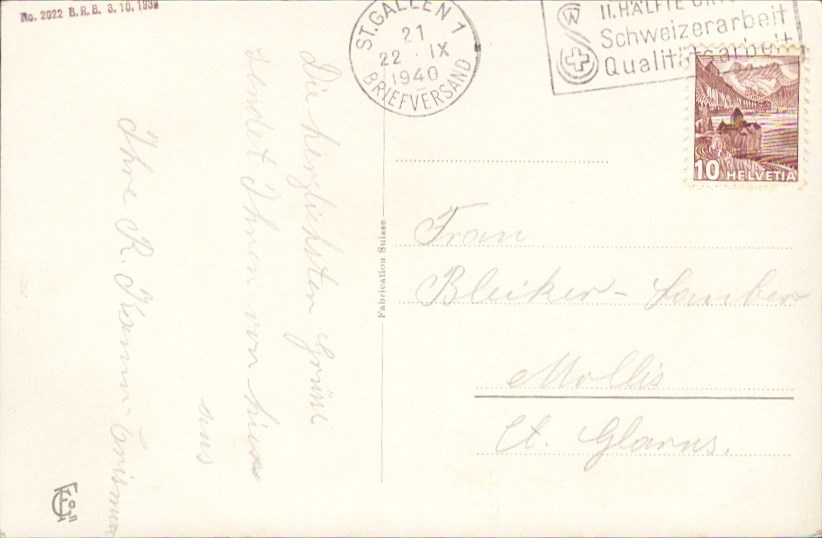 No. 2022 B.R.B. 3.10.1939
ST. GALLEN 1
21
22 · IX
1940
BRIEFVERSAND
II. HÄLFTE
Schweizerarbeit
Qualitätsarbeit
10 HELVETIA
Die herzlichsten Grüsse
sendet Ihnen von hier
aus
Ihre R.
Fabrication Suisse
Frau
Bleiker-
Mollis
Ct. Glarus.